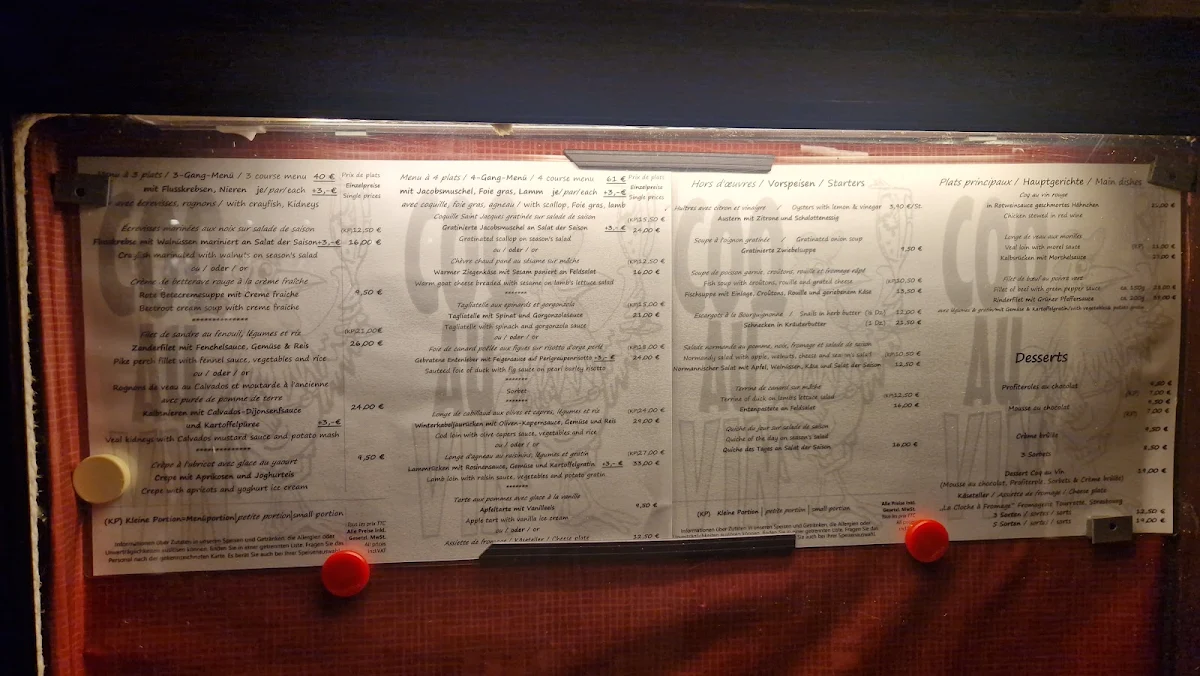 Menu à 3 plats / 3-Gang-Menü / 3 course menu 40 €
mit Flusskrebsen, Nieren je/par/each +3,-€
avec écrevisses, rognons / with crayfish, Kidneys
Prix de plats
Einzelpreise
Single prices
Écrevisses marinées aux noix sur salade de saison (KP)12,50 €
Flusskrebse mit Walnüssen mariniert an Salat der Saison +3,-€ 16,00 €
Crayfish marinated with walnuts on season's salad
ou / oder / or
Crème de betterave rouge à la crème fraîche
Rote Betecremesuppe mit Creme fraiche 9,50 €
Beetroot cream soup with creme fraiche
*************
Filet de sandre au fenouil, légumes et riz (KP)21,00 €
Zanderfilet mit Fenchelsauce, Gemüse & Reis 26,00 €
Pike perch fillet with fennel sauce, vegetables and rice
ou / oder / or
Rognons de veau au Calvados et moutarde à l'ancienne
avec purée de pomme de terre
Kalbsnieren mit Calvados-Dijonsenfsauce 24,00 €
und Kartoffelpüree +3,-€
Veal kidneys with Calvados mustard sauce and potato mash
*************
Crêpe à l'abricot avec glace au yaourt 9,50 €
Crepe mit Aprikosen und Joghurteis
Crepe with apricots and yoghurt ice cream
(KP) Kleine Portion=Menüportion|petite portion|small portion
Tous les prix TTC
Alle Preise inkl.
Gesetzl. MwSt.
Informationen über Zutaten in unseren Speisen und Getränken, die Allergien oder
Unverträglichkeiten auslösen können, finden Sie in einer getrennten Liste. Fragen Sie das
Personal nach der gekennzeichneten Karte. Es berät Sie auch bei Ihrer Speisenauswahl.
Menu à 4 plats / 4-Gang-Menü / 4 course menu 61 €
mit Jacobsmuschel, Foie gras, Lamm je/par/each +3,-€
avec coquille, foie gras, agneau / with scallop, Foie gras, lamb
Prix de plats
Einzelpreise
Single prices
Coquille Saint Jacques gratinée sur salade de saison (KP)19,50 €
Gratinierte Jacobsmuschel an Salat der Saison +3,-€ 24,00 €
Gratinated scallop on season's salad
ou / oder / or
Chèvre chaud pané au sésame sur mâche (KP)12,50 €
Warmer Ziegenkäse mit Sesam paniert an Feldsalat 16,00 €
Warm goat cheese breaded with sesame on lamb's lettuce salad
*******
Tagliatelle aux épinards et gorgonzola (KP)15,00 €
Tagliatelle mit Spinat und Gorgonzolasauce 21,00 €
Tagliatelle with spinach and gorgonzola sauce
ou / oder / or
Foie de canard poêlée aux figues sur risotto d'orge perlé (KP)18,00 €
Gebratene Entenleber mit Feigensauce auf Perlgraupenrisotto +3,-€ 24,00 €
Sauteed foie of duck with fig sauce on pearl barley risotto
*******
Sorbet
*******
Longe de cabillaud aux olives et capres, légumes et riz (KP)24,00 €
Winterkabeljaurücken mit Oliven-Kapernsauce, Gemüse und Reis 29,00 €
Cod loin with olive capers sauce, vegetables and rice
ou / oder / or
Longe d'agneau au raisins, légumes et gratin (KP)27,00 €
Lammrücken mit Rosinensauce, Gemüse und Kartoffelgratin +3,-€ 33,00 €
Lamb loin with raisin sauce, vegetables and potato gratin
*******
Tarte aux pommes avec glace à la vanille
Apfeltarte mit Vanilleeis 9,50 €
Apple tart with vanilla ice cream
ou / oder / or
Assiette de fromage / Käseteller / Cheese plate 12,50 €
Hors d'œuvres / Vorspeisen / Starters
Huîtres avec citron et vinaigre Oysters with lemon & vinegar 3,90 €/St.
Austern mit Zitrone und Schalottenessig
Soupe à l'oignon gratinée / Gratinated onion soup
Gratinierte Zwiebelsuppe 9,50 €
Soupe de poisson garnie, croûtons, rouille et fromage râpé
Fish soup with croûtons, rouille and grated cheese (KP)10,50 €
Fischsuppe mit Einlage, Croûtons, Rouille und geriebenem Käse 13,50 €
Escargots à la Bourguignonne / Snails in herb butter (½ Dz) 12,00 €
Schnecken in Kräuterbutter (1 Dz) 21,50 €
Salade normande au pomme, noix, fromage et salade de saison
Normandy salad with apple, walnuts, cheese and season's salad (KP)10,50 €
Normannischer Salat mit Apfel, Walnüssen, Käse und Salat der Saison 12,50 €
Terrine de canard sur mâche
Terrine of duck on lamb's lettuce salad (KP)12,50 €
Entenpastete an Feldsalat 16,00 €
Quiche du jour sur salade de saison
Quiche of the day on season's salad
Quiche des Tages an Salat der Saison 16,00 €
(KP) Kleine Portion | petite portion | small portion
Alle Preise inkl.
Gesetzl. MwSt.
Informationen über Zutaten in unseren Speisen und Getränken, die Allergien oder
Plats principaux / Hauptgerichte / Main dishes
Coq au vin rouge
in Rotweinsauce geschmortes Hähnchen
Chicken served in red wine
Longe de veau aux morilles
Veal loin with morel sauce
Kalbsrücken mit Morchelsauce
Filet de bœuf au poivre vert
Fillet of beef with green pepper sauce
Rinderfilet mit Grüner Pfeffersauce
Desserts
Profiteroles au chocolat 9,50 €
(KP) 7,00 €
Mousse au chocolat 9,50 €
(KP) 7,00 €
Crème brûlée 9,50 €
3 Sorbets 8,50 €
Dessert Coq au Vin 19,00 €
(Mousse au chocolat, Profiterole, Sorbets & Crème brûlée)
Käseteller / Assiette de fromage / Cheese plate
"La Cloche à Fromage" Fromagerie Tourrette, Strasbourg
3 Sorten / sortes / sorts 12,50 €
5 Sorten / sortes / sorts 19,00 €
COQ AU VIN